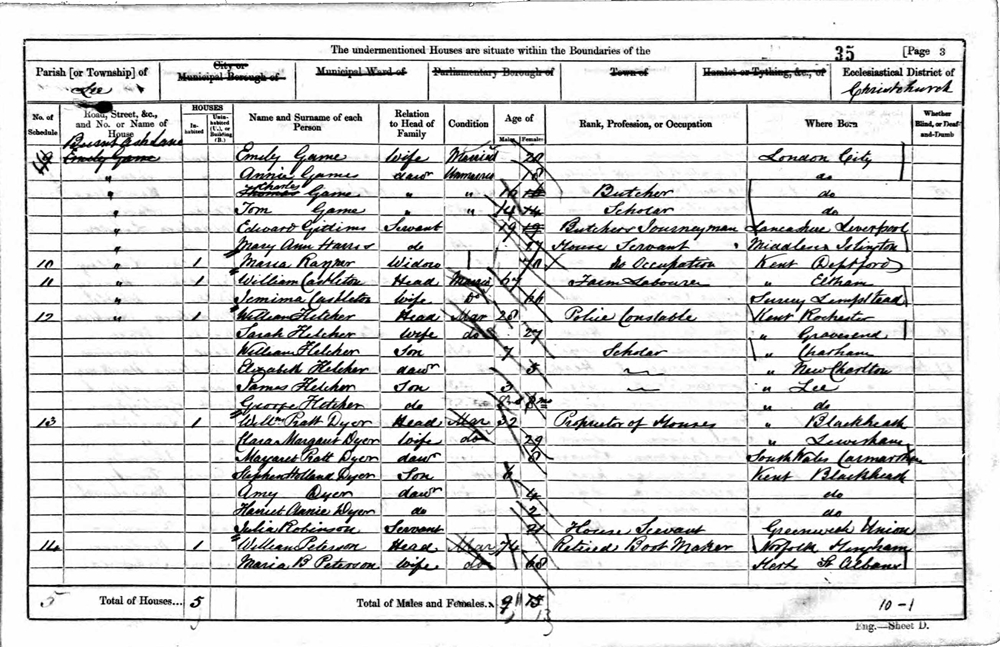 The undermentioned Houses are situate within the Boundaries of the 35 [Page 3
Parish [or Township] of City or Municipal Borough of Municipal Ward of Parliamentary Borough of Town of Hamlet or Tything, &c., of Ecclesiastical District of
Lee Christchurch
No. of Schedule Road, Street, &c., and No. or Name of House HOUSES Inhabited Uninhabited (U.), or Building (B.) Name and Surname of each Person Relation to Head of Family Condition Age of Males Females Rank, Profession, or Occupation Where Born Whether Blind, or Deaf-and-Dumb
Burnt Ash Lane
Emily Game Emily Game Wife Married London City
" Annie Games daur Unmarried 18 do
" Thomas Charles Game " " 16 Butcher do
" Tom Game " " 14 14 Scholar do
" Edward Gidims Servant 19 19 Butchers Journeyman Lancashire Liverpool
" Mary Ann Harris do 17 House Servant Middlesex Islington
10 " 1 Maria Widow No Occupation Kent Deptford
11 " 1 William Castleton Head Married 67 Farm Labourer " Eltham
Jemima Castleton Wife do 66 Surrey
12 " 1 William Fletcher Head Mar 28 Police Constable Kent Rochester
Sarah Fletcher Wife do 27 " Gravesend
William Fletcher Son 7 Scholar " Chatham
Elizabeth Fletcher daur 5 " New Charlton
James Fletcher Son 3 " Lee
George Fletcher do " do
13 1 Willm Pratt Dyer Head Mar 32 Proprietor of Houses " Blackheath
Clara Margaret Dyer Wife do 29 " Lewisham
Margaret Pratt Dyer daur 8 South Wales Carmarthen
Stephen Holland Dyer Son 6 Kent Blackheath
Amy Dyer daur 4 do
Harriet Annie Dyer do 2 do
Julia Robinson Servant 21 House Servant Greenwich Union
14 1 William Peterson Head Mar 74 Retired Boot Maker Norfolk Hingham
Maria B Peterson Wife do 68 Hert St Albans
5 Total of Houses... 5 Total of Males and Females.. 9 11 15 13 10-1
Eng.—Sheet D.